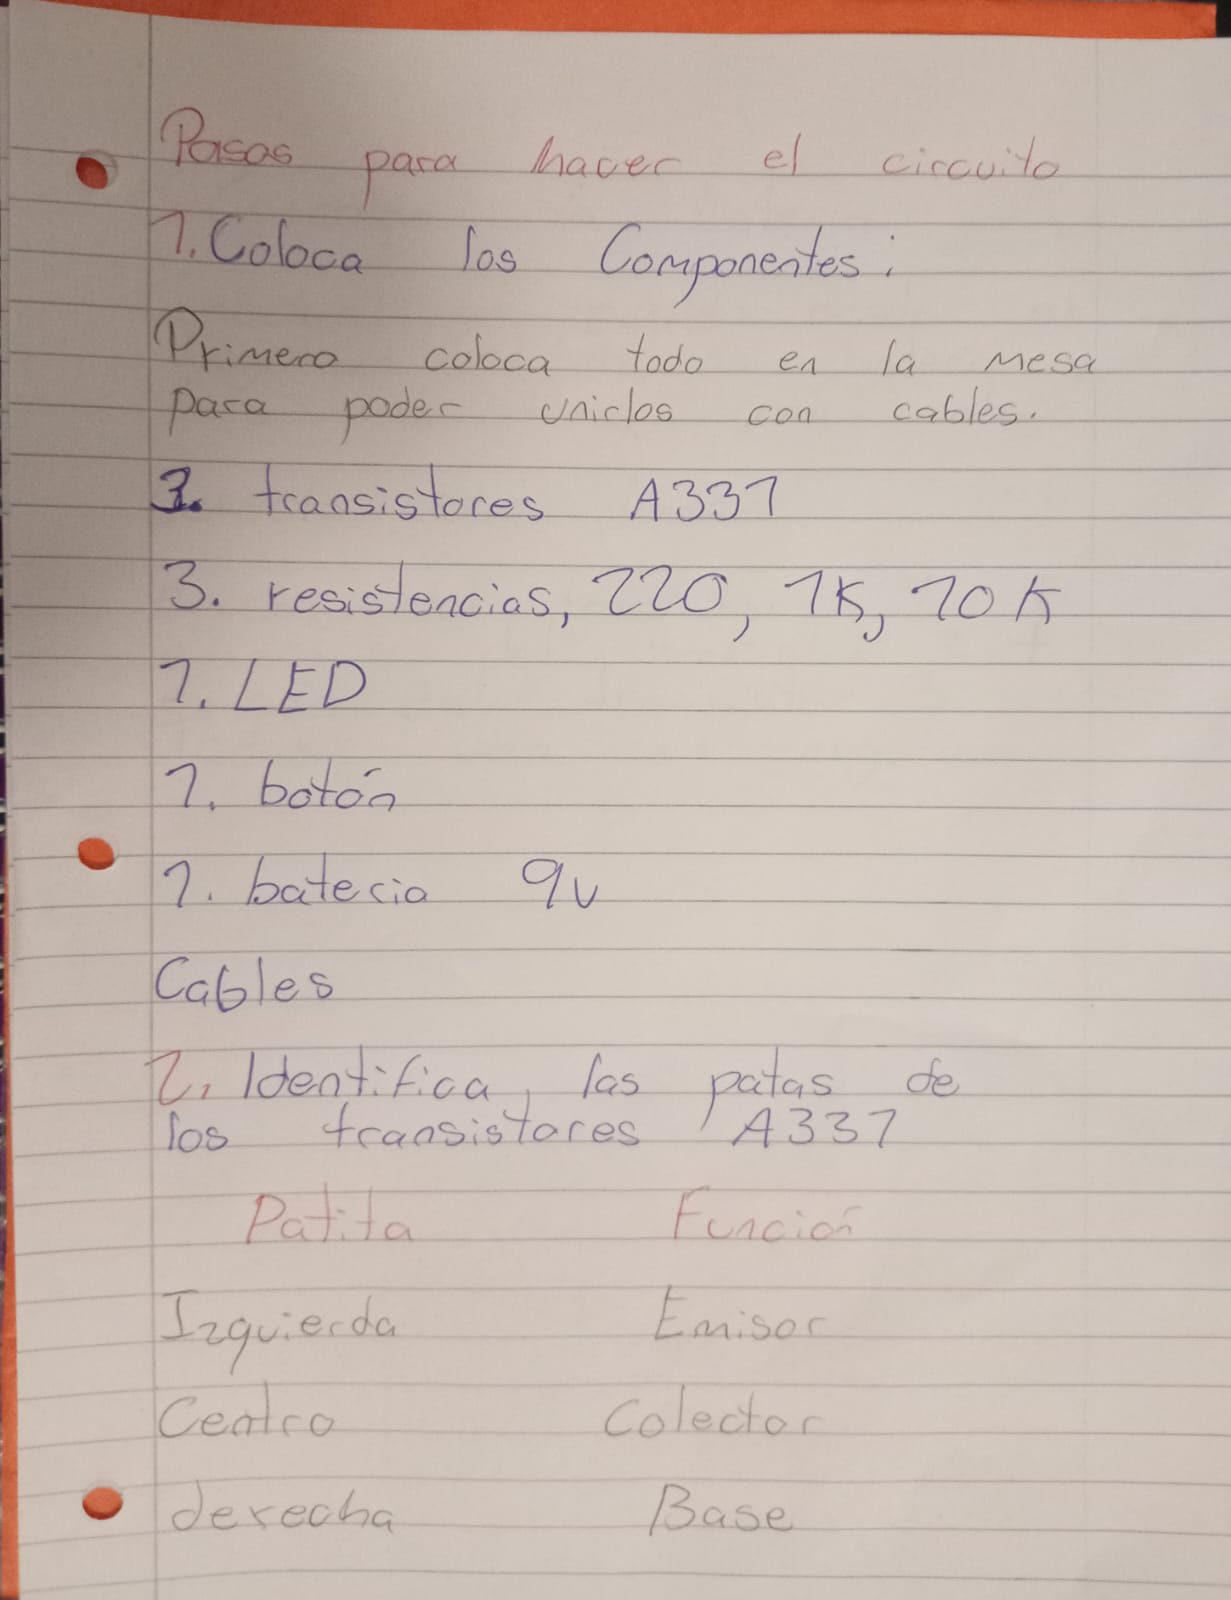 Pasos para hacer el circuito
1. Coloca los Componentes:
Primero coloca todo en la mesa
para poder unirlos con cables.
3. transistores A337
3. resistencias, 220, 1K, 10K
1. LED
1. botón
1. bateria 9v
Cables
2. Identifica, las patas de
los transistores A337
Patita Función
Izquierda Emisor
Centro Colector
derecha Base